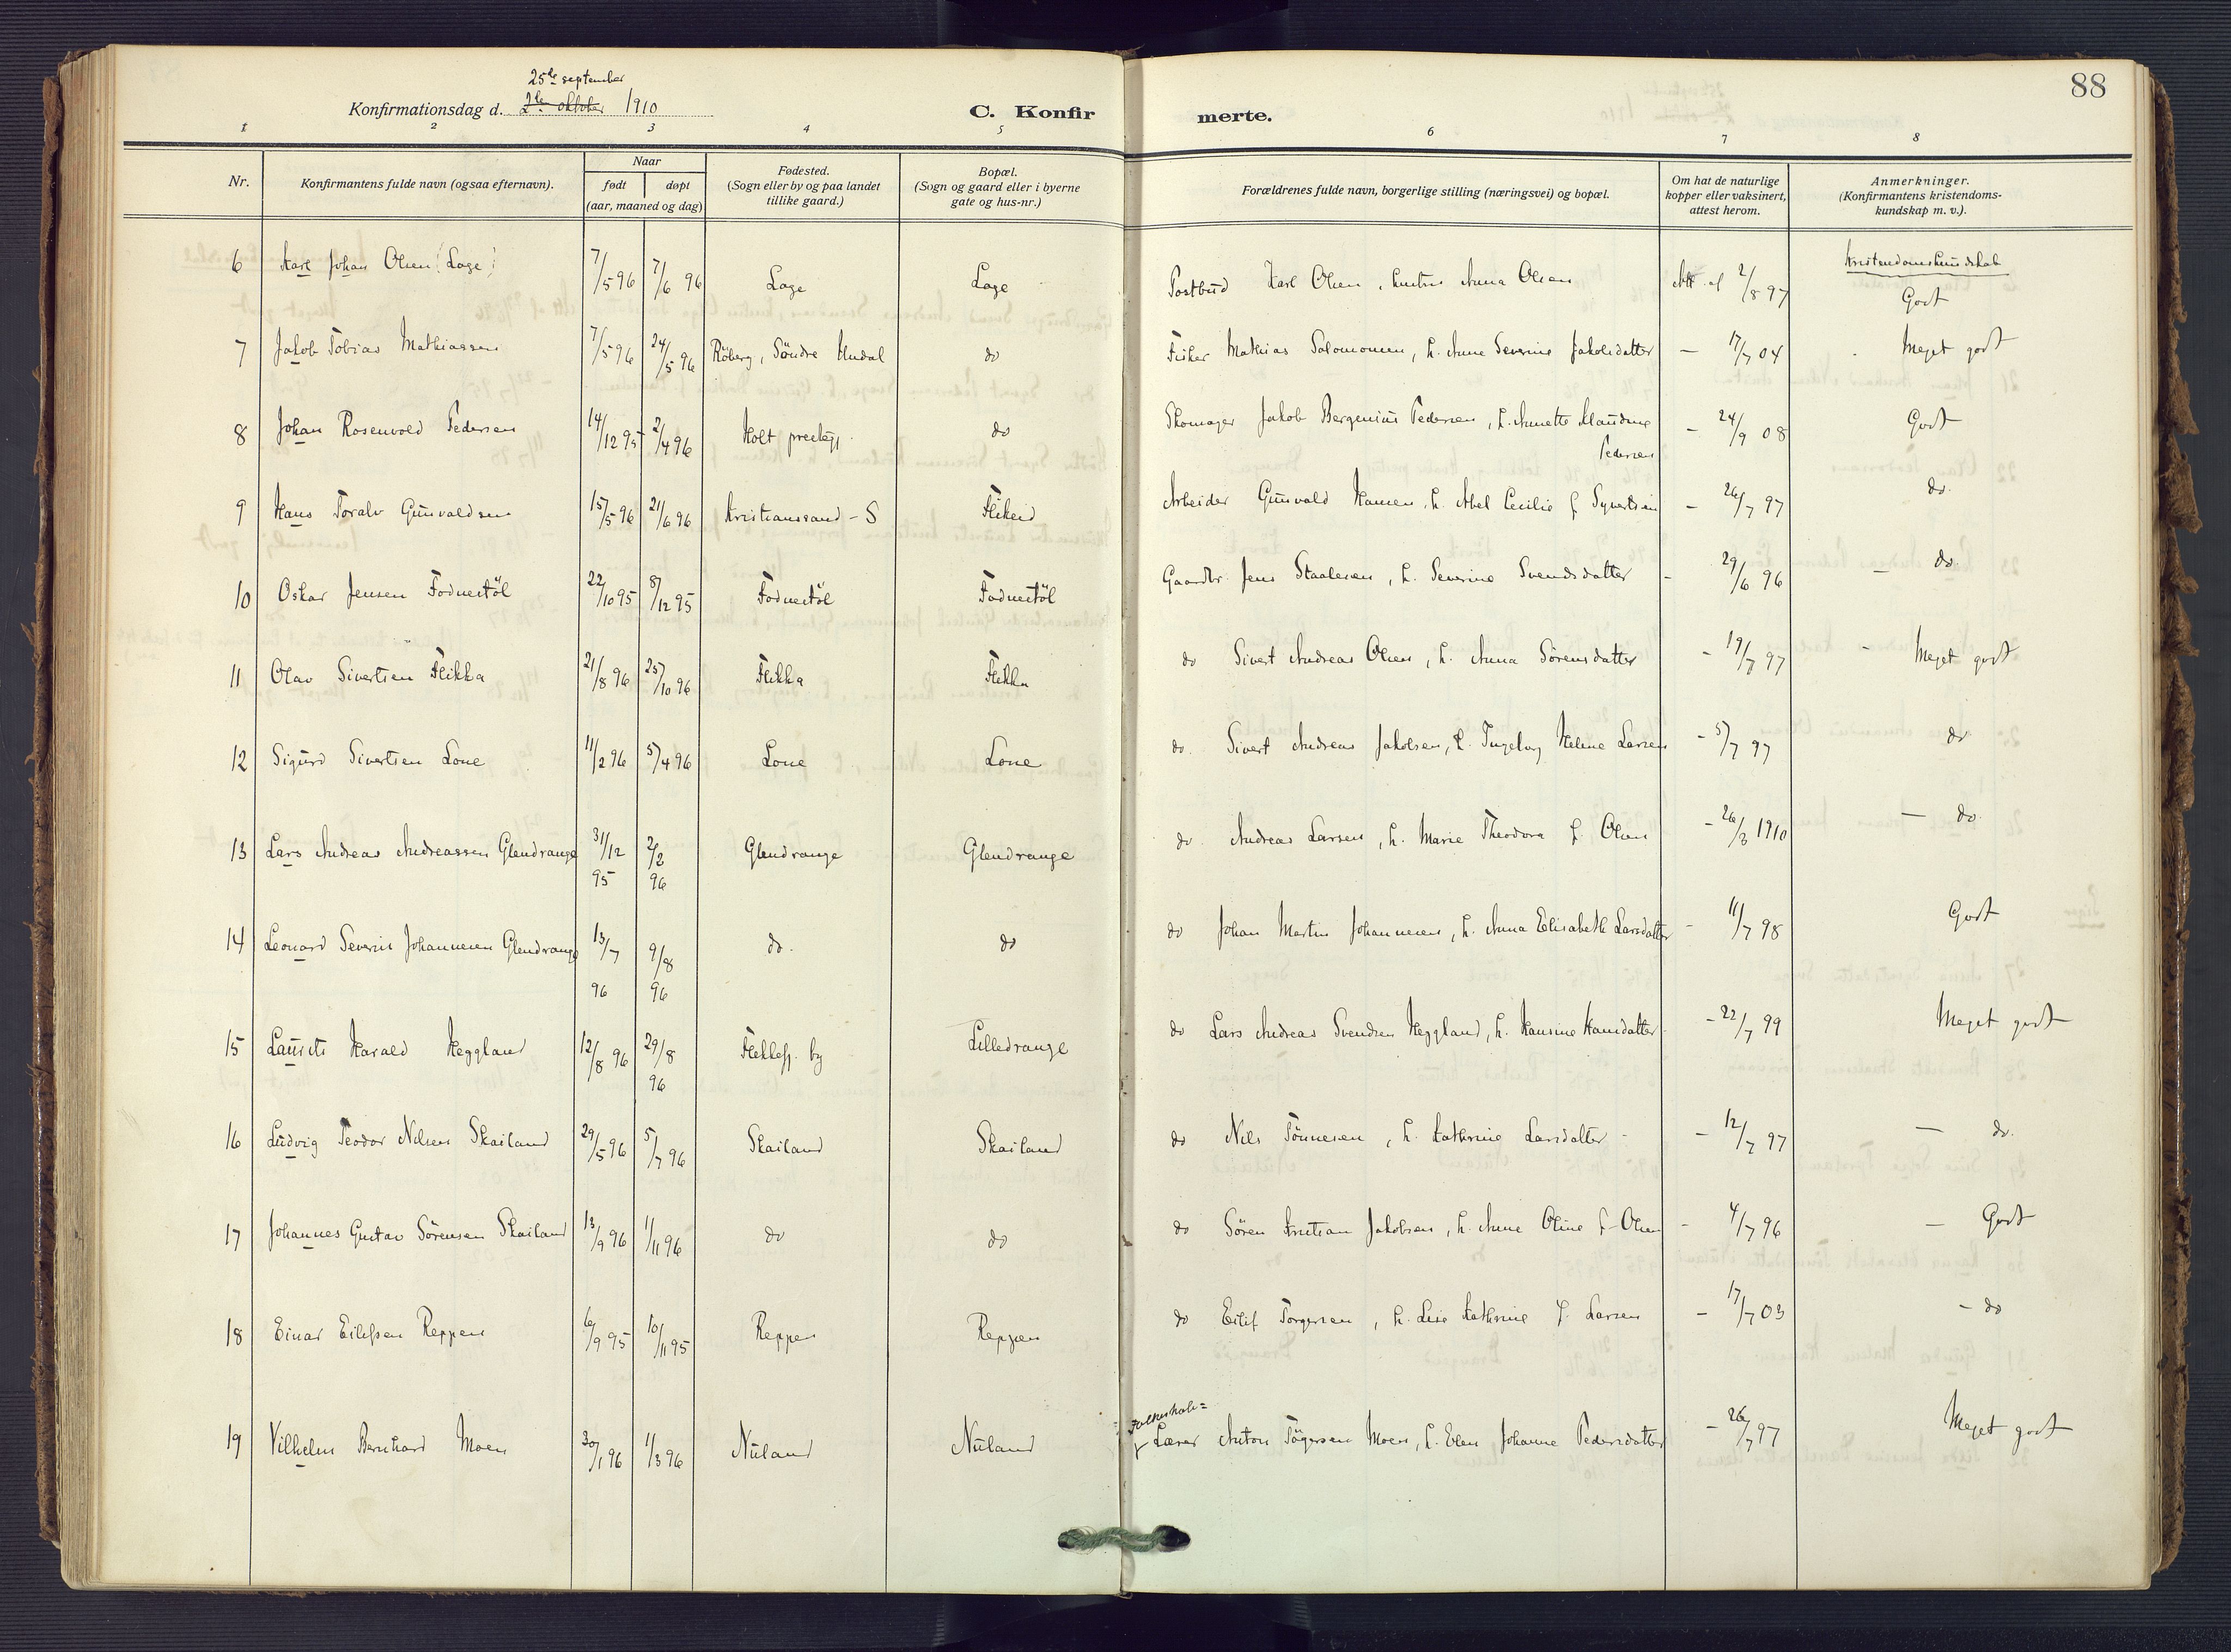 88
25de september
Konfirmationsdag d. 2den oktober 1910
C. Konfir merte.
1 2 3 4 5 6 7 8
Nr. Konfirmantens fulde navn (ogsaa efternavn). Naar født døpt (aar, maaned og dag) Fødested. (Sogn eller by og paa landet tillike gaard.) Bopæl. (Sogn og gaard eller i byerne gate og hus-nr.) Forældrenes fulde navn, borgerlige stilling (næringsvei) og bopæl. Om hat de naturlige kopper eller vaksinert, attest herom. Anmerkninger. (Konfirmantens kristendoms-kundskap m. v.).
Kristendomskundskab
6 Karl Johan Olsen (Loge) 7/5 96 7/6 96 Loge Loge Postbud Karl Olsen, hustru Anna Olsen Att. af 2/8 97 Godt
7 Jakob Tobias Mathiassen 7/5 96 24/5 96 Röberg, Söndre Undal do Fisker Mathias Salomonsen, h. Anne Severine Jakobsdatter — 17/7 04 Meget godt
8 Johan Rosenvold Pedersen 14/12 95 2/4 96 Holt prestegj. do Skomager Jakob Bergenius Pedersen, h. Annette Maudine
Pedersen — 24/9 08 Godt
9 Hans Toralv Gunvaldsen 15/5 96 21/6 96 Kristianssand - S Flikeid Arbeider Gunvald Hansen, h. Abel Cecilie f. Syvertsen — 26/7 97 do.
10 Oskar Jensen Fodnestöl 22/10 95 8/12 95 Fodnestöl Fodnestöl Gaardbr. Jens Staalesen, h. Severine Svendsdatter - 29/6 96 — do.
11 Olav Sivertsen Flikka 21/8 96 25/10 96 Flikka Flikka do Sivert Andreas Olsen, h. Anna Sörensdatter - 19/7 97 - Meget godt
12 Sigurd Sivertsen Lone 11/2 96 5/4 96 Lone Lone do. Sivert Andreas Jakobsen, h. Ingeborg Helene Larsen - 5/7 97 do
13 Lars Andreas Andreassen Glendrange 31/12 95 2/2 96 Glendrange Glendrange do. Andreas Larsen, h. Marie Theodora f. Olsen - 26/8 1910 — do.
14 Leonard Severin Johannesen Glendrange 13/7 96 9/8 96 do. do do Johan Martin Johannesen, h. Anna Elisabeth Larsdatter - 11/7 98 Godt
15 Laurits Harald Heggland 12/8 96 29/8 96 Flekkefj. by Lilledrange do Lars Andreas Svendsen Heggland, h. Hansine Hansdatter - 22/7 99 Meget godt
16 Ludvig Teodor Nilsen Skailand 29/5 96 5/7 96 Skailand Skailand do Nils Tönnesen, h. Kathrine Larsdatter - 12/7 97 — do.
17 Johannes Gustav Sörensen Skailand 13/9 96 1/11 96 do do do Sören Kristian Jakobsen, h. Anne Oline f. Olsen - 4/7 96 — Godt
18 Einar Eilifsen Reppen 6/9 95 10/11 95 Reppen Reppen do Eilif Torgersen, h. Lise Kathrine f. Larsen - 17/7 03 - do
Folkeskole=
19 Vilhelm Bernhard Moen 30/1 96 1/3 96 Nuland Nuland Lærer Anton Tögersen Moen, h. Elen Johanne Pedersdatter - 26/7 97 Meget godt